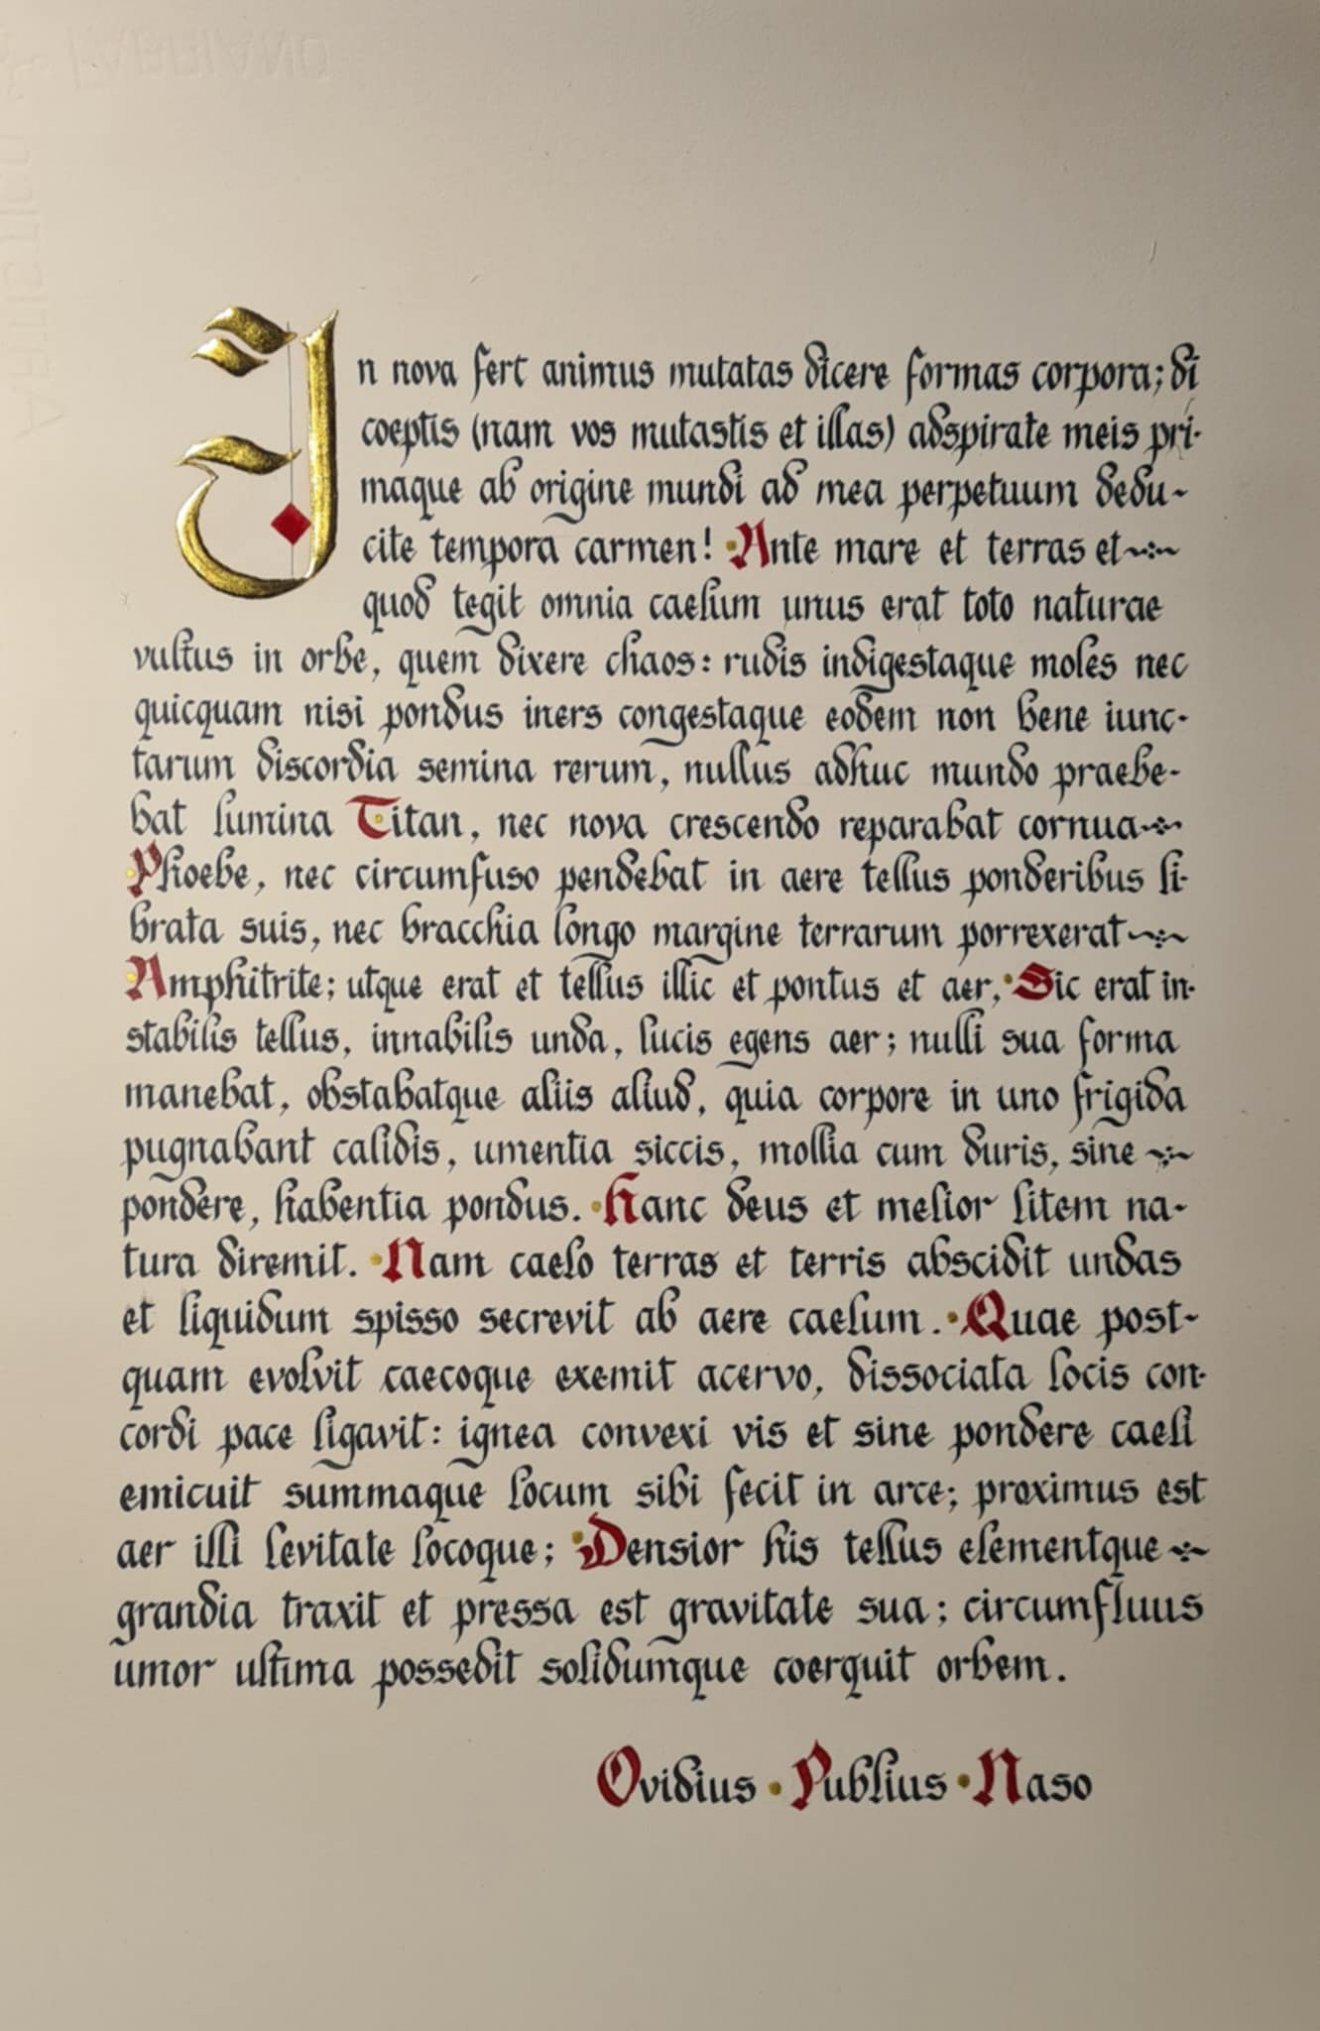 In nova fert animus mutatas dicere formas corpora; di
coeptis (nam vos mutastis et illas) adspirate meis pri-
maque ab origine mundi ad mea perpetuum dedu-
cite tempora carmen! Ante mare et terras et
quod tegit omnia caelum unus erat toto naturae
vultus in orbe, quem dixere chaos: rudis indigestaque moles nec
quicquam nisi pondus iners congestaque eodem non bene iunc-
tarum discordia semina rerum, nullus adhuc mundo praebe-
bat lumina Titan, nec nova crescendo reparabat cornua
Phoebe, nec circumfuso pendebat in aere tellus ponderibus li-
brata suis, nec bracchia longo margine terrarum porrexerat
Amphitrite; utque erat et tellus illic et pontus et aer, Sic erat in-
stabilis tellus, innabilis unda, lucis egens aer; nulli sua forma
manebat, obstabatque aliis aliud, quia corpore in uno frigida
pugnabant calidis, umentia siccis, mollia cum duris, sine
pondere, habentia pondus. Hanc deus et melior litem na-
tura diremit. Nam caelo terras et terris abscidit undas
et liquidum spisso secrevit ab aere caelum. Quae post-
quam evolvit caecoque exemit acervo, dissociata locis con-
cordi pace ligavit: ignea convexi vis et sine pondere caeli
emicuit summaque locum sibi fecit in arce; proximus est
aer illi levitate locoque; Densior his tellus elementque
grandia traxit et pressa est gravitate sua; circumfluus
umor ultima possedit solidumque coerquit orbem.
Ovidius · Publius · Naso